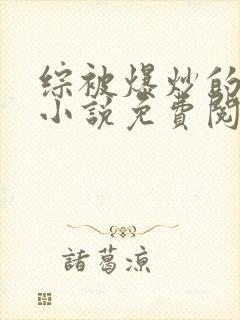 综被爆炒的
小说免費阅
諸葛凉